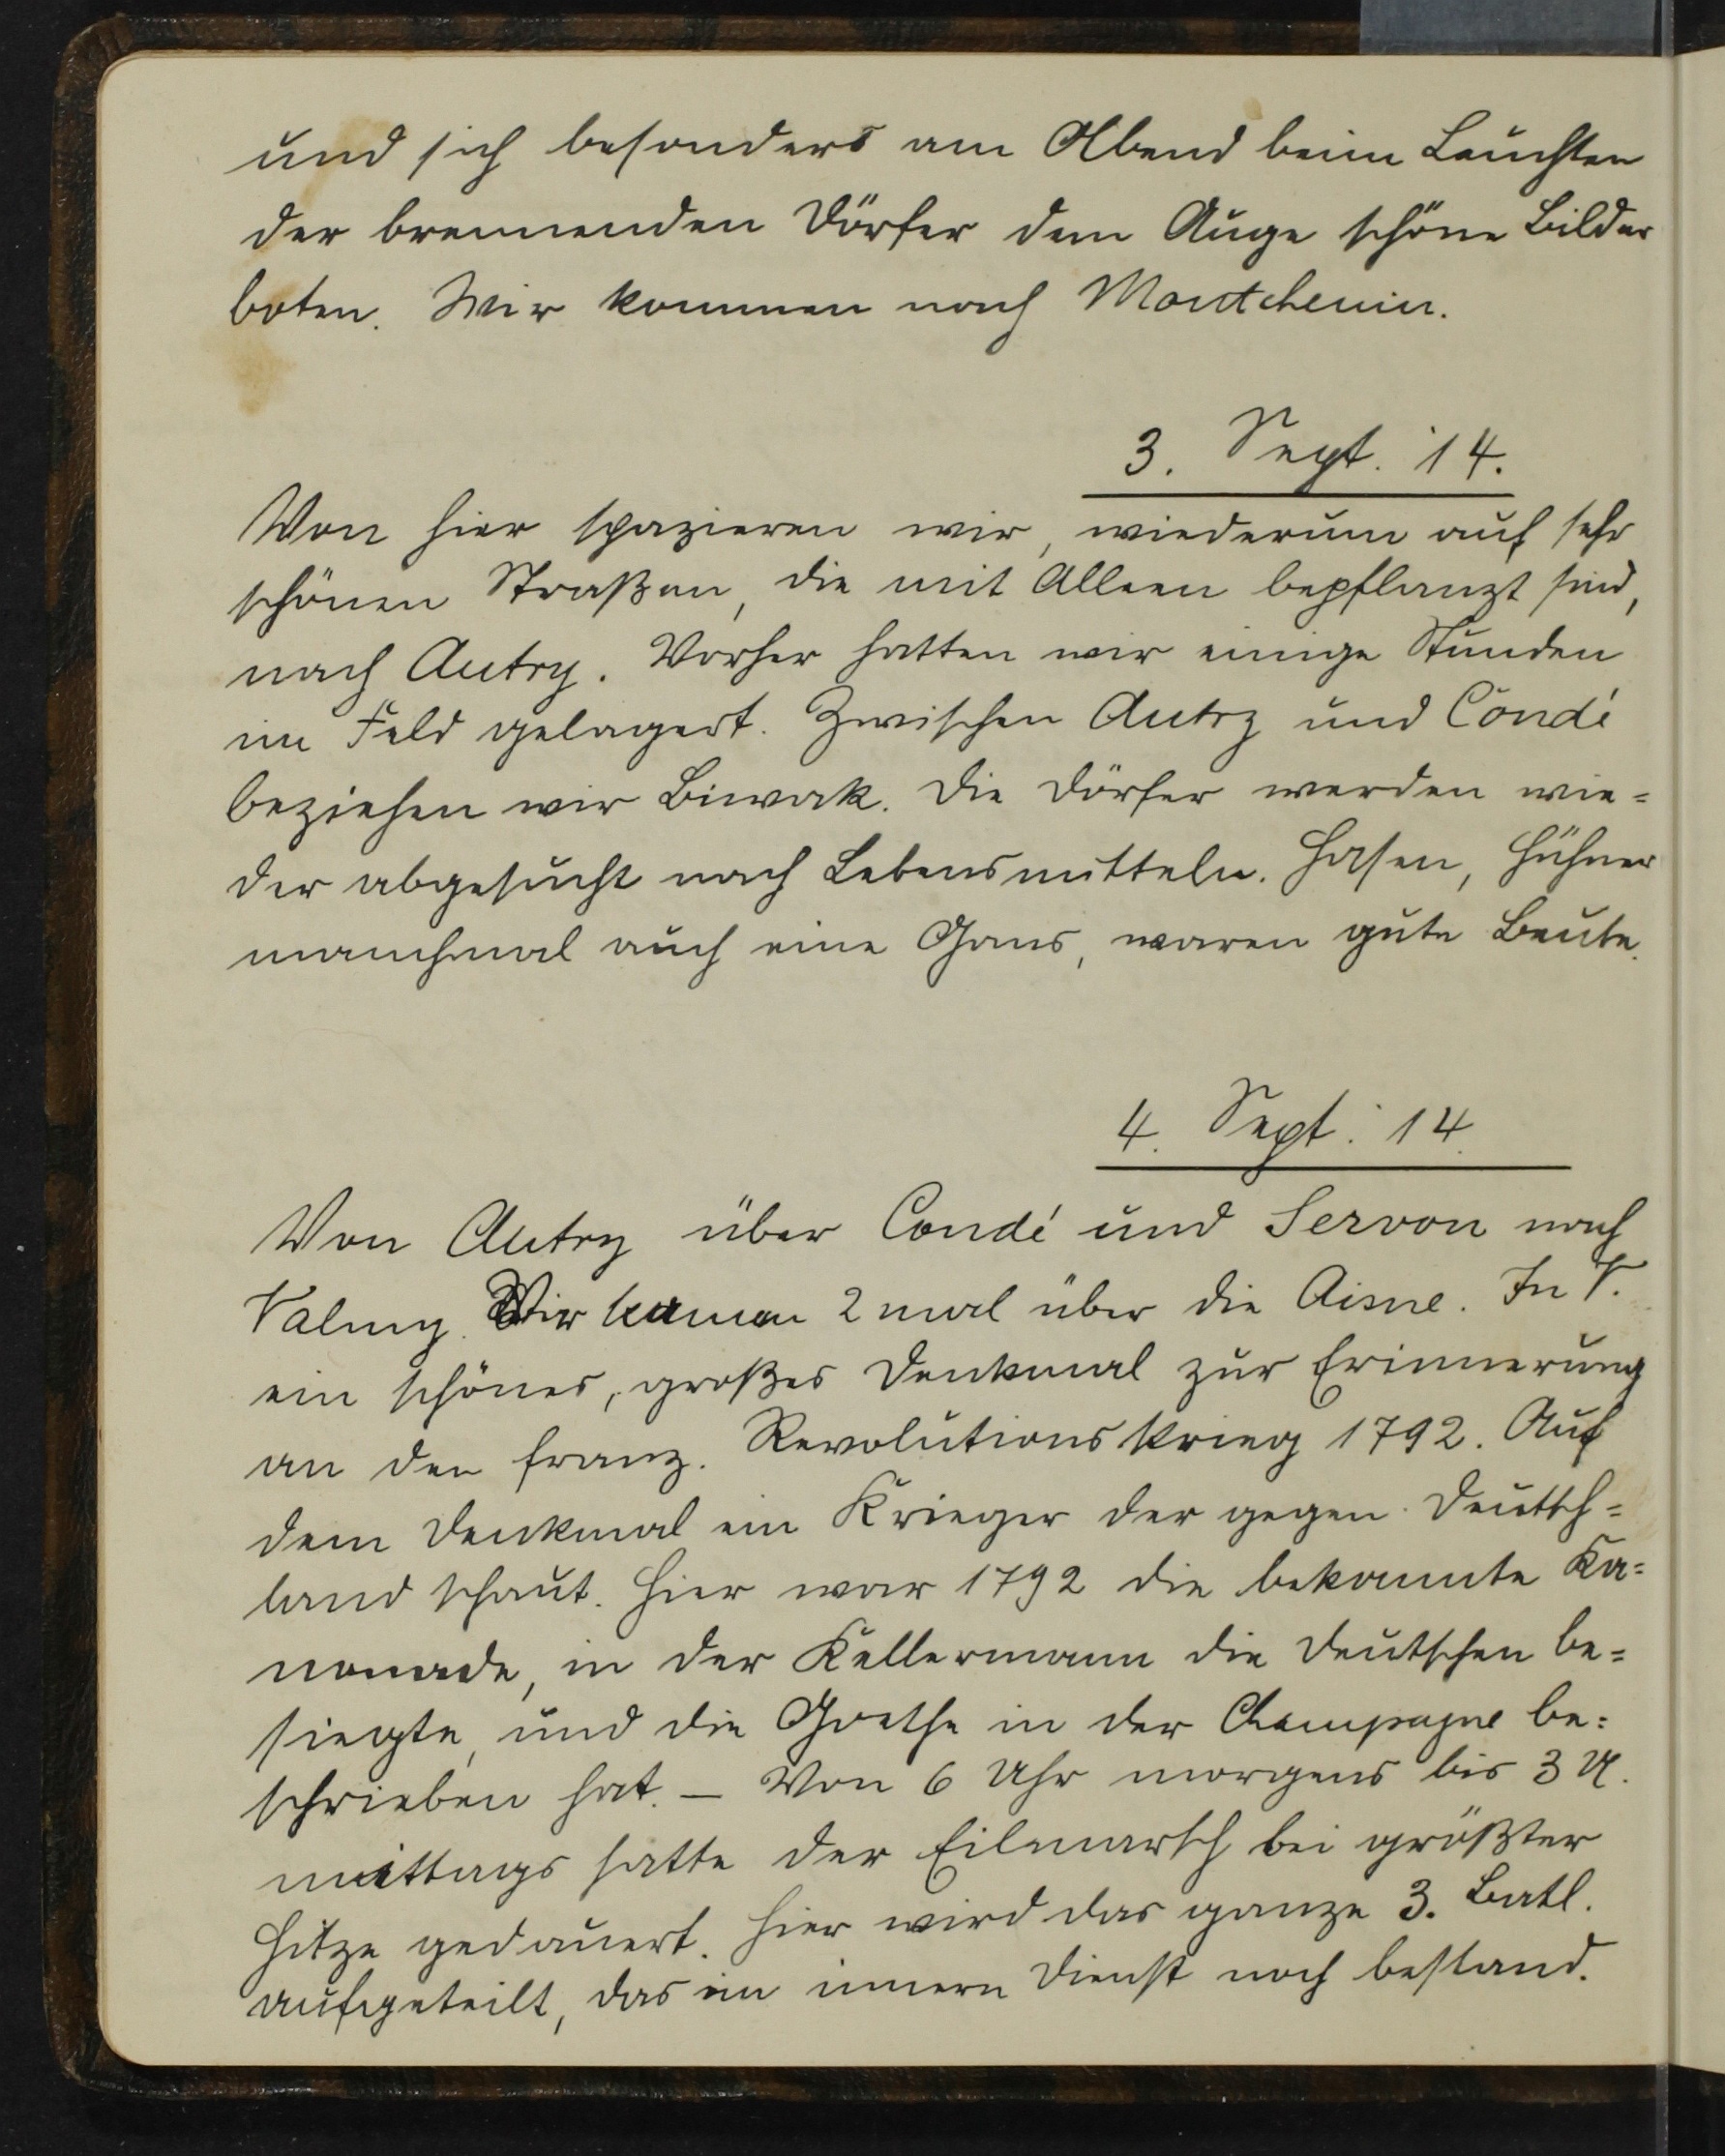 und sich besonders am Abend beim Leuchten
der brennenden Dörfer dem Auge schöne Bilder
boten. Wir kommen nach Montcheuin.
3. Sept. 14.
Von hier spazieren wir, wiederum auf sehr
schönen Straßen, die mit Alleen bepflanzt sind,
nach Autry. Vorher hatten wir einige Stunden
im Feld gelagert. Zwischen Autry und Condé
beziehen wir Biwak. Die Dörfer werden wie=
der abgesucht nach Lebensmitteln. Hasen, Hühner
manchmal auch eine Gans, waren gute Beute.
4. Sept. 14.
Von Autry über Condé und Servon nach
Valmy. Wir kamen 2 mal über die Aisne. In V.
ein schönes, großes Denkmal zur Erinnerung
an den franz. Revolutionskrieg 1792. Auf
dem Denkmal ein Krieger der gegen Deutsch=
land schaut. Hier war 1792 die bekannte Ka=
nonade, in der Kellermann die Deutschen be=
siegte, und die Goethe in der Champagne be=
schrieben hat. – Von 6 Uhr morgens bis 3 U.
mittags hatte der Eilmarsch bei größter
Hitze gedauert. Hier wird das ganze 3. Batl.
aufgeteilt, das im innern Dienst noch bestand.